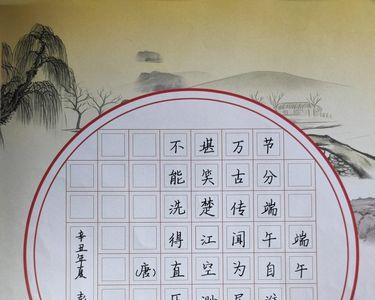 端午
节分端午自
万古传闻为
堪笑楚江空
不能洗得直
(唐)
辛丑年夏